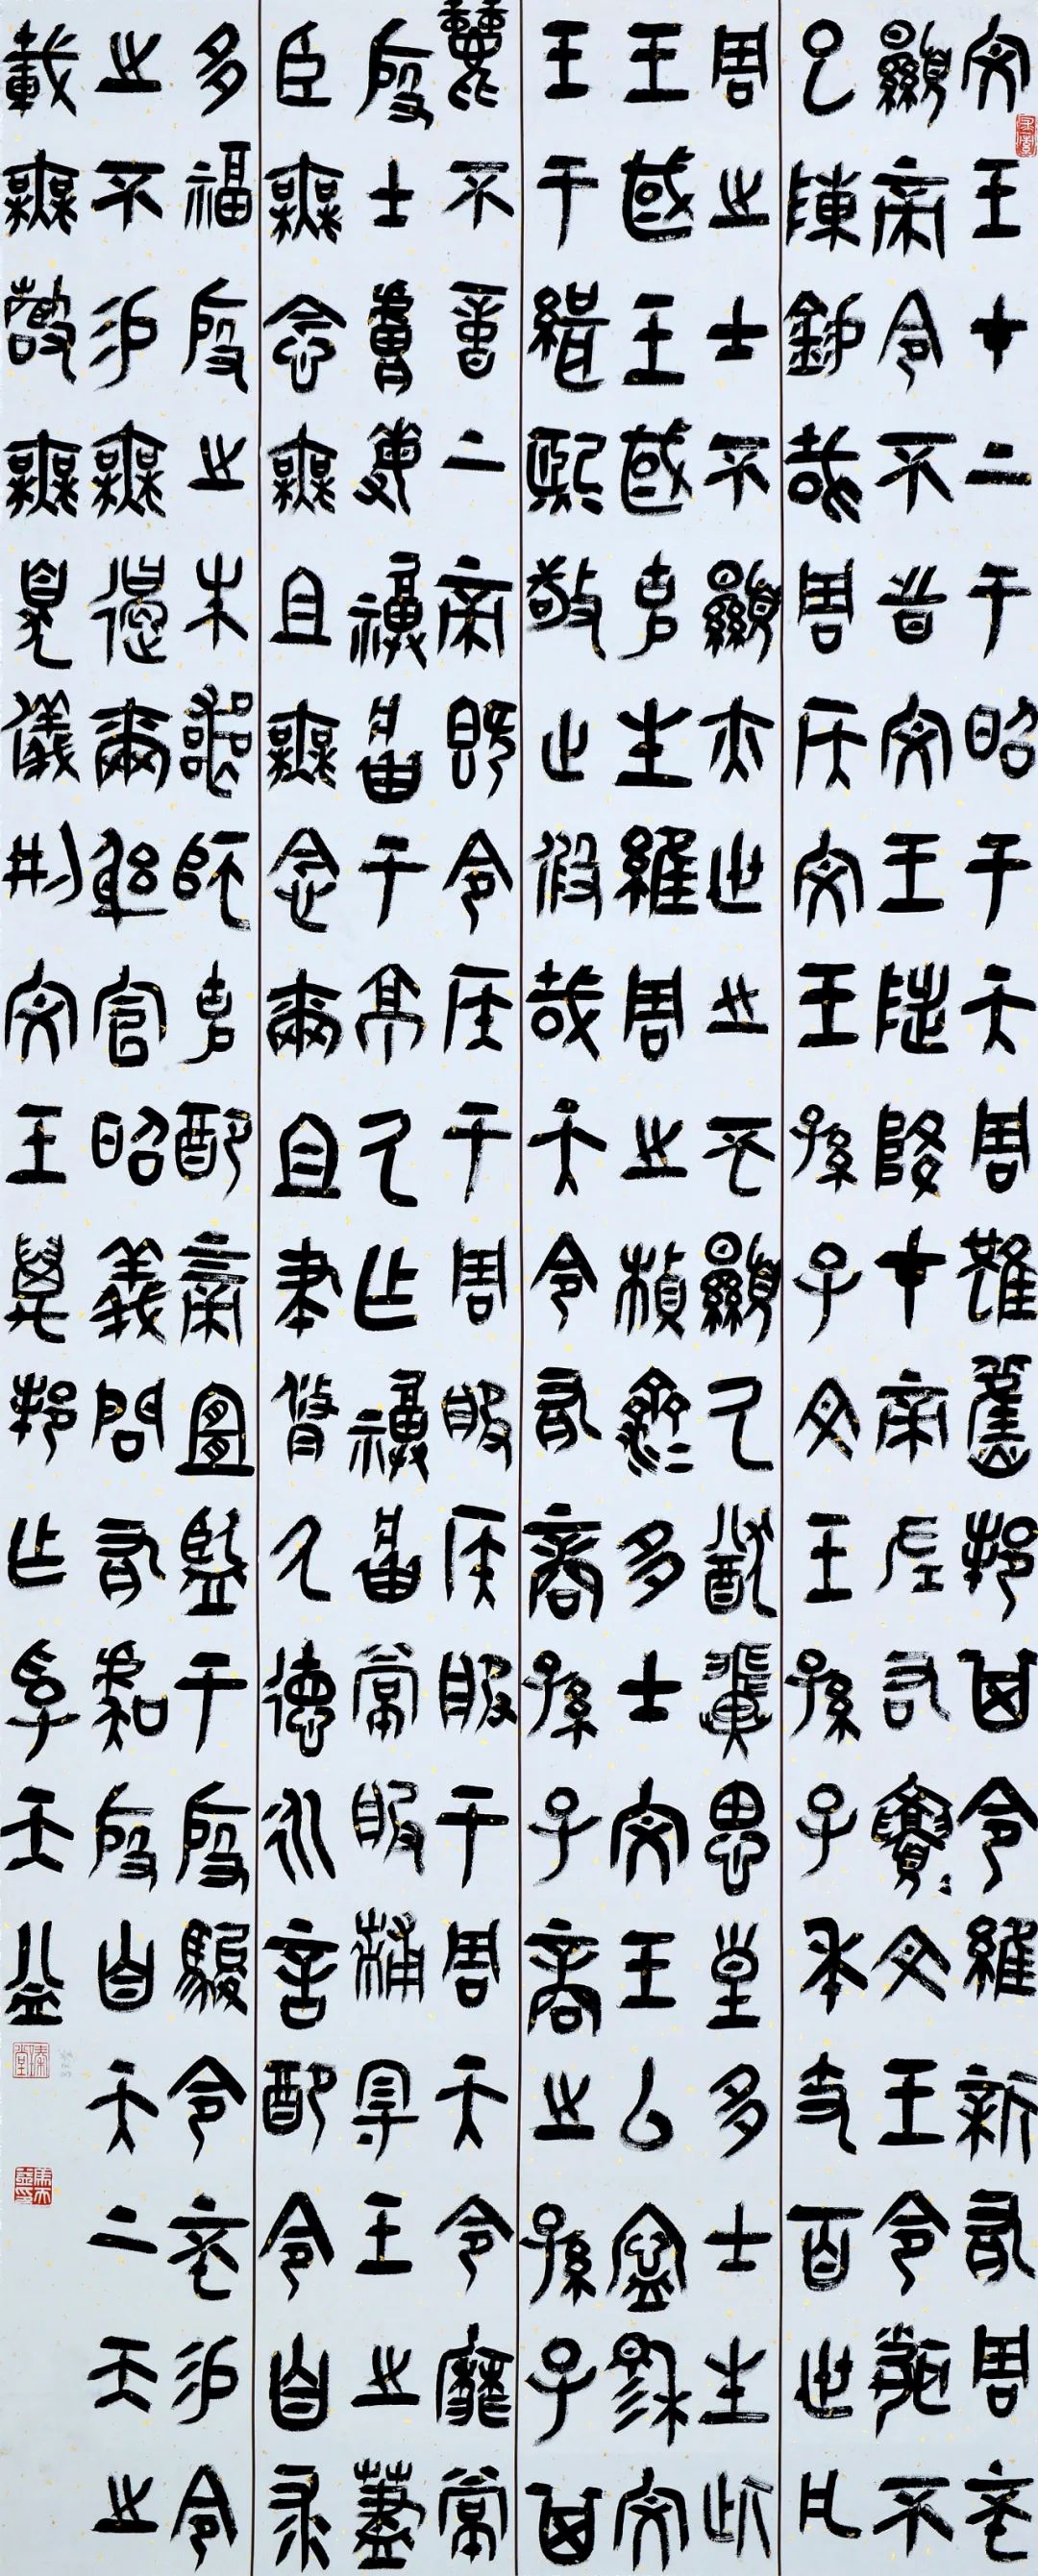 文王在上于昭于天周雖舊邦其命維新有周不
顯帝命不時文王陟降在帝左右亹文王令聞不
已陳錫哉周侯文王孫子文王孫子本支百世凡
周之士不顯亦世之不顯厥猷翼思皇多士生此
王國王國克生維周之楨濟多士文王以寧穆文
王于緝熙敬止假哉天命有商孫子商之孫子其
麗不億上帝既命侯于周服侯服于周天命靡常
殷士膚敏祼將于京厥作祼將常服黼冔王之藎
臣無念無祖無念爾祖聿脩厥德永言配命自求
多福殷之未喪師克配上帝宜監于殷駿命不易命
之不易無遏爾躬宣昭義問有虞殷自天上天之
載無聲無臭儀刑文王萬邦作孚天益